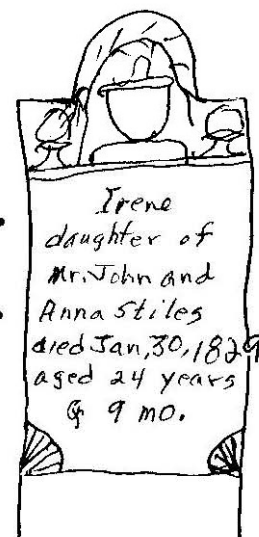 Irene
daughter of
Mr. John and
Anna Stiles
died Jan, 30, 1829
aged 24 years
& 9 mo.